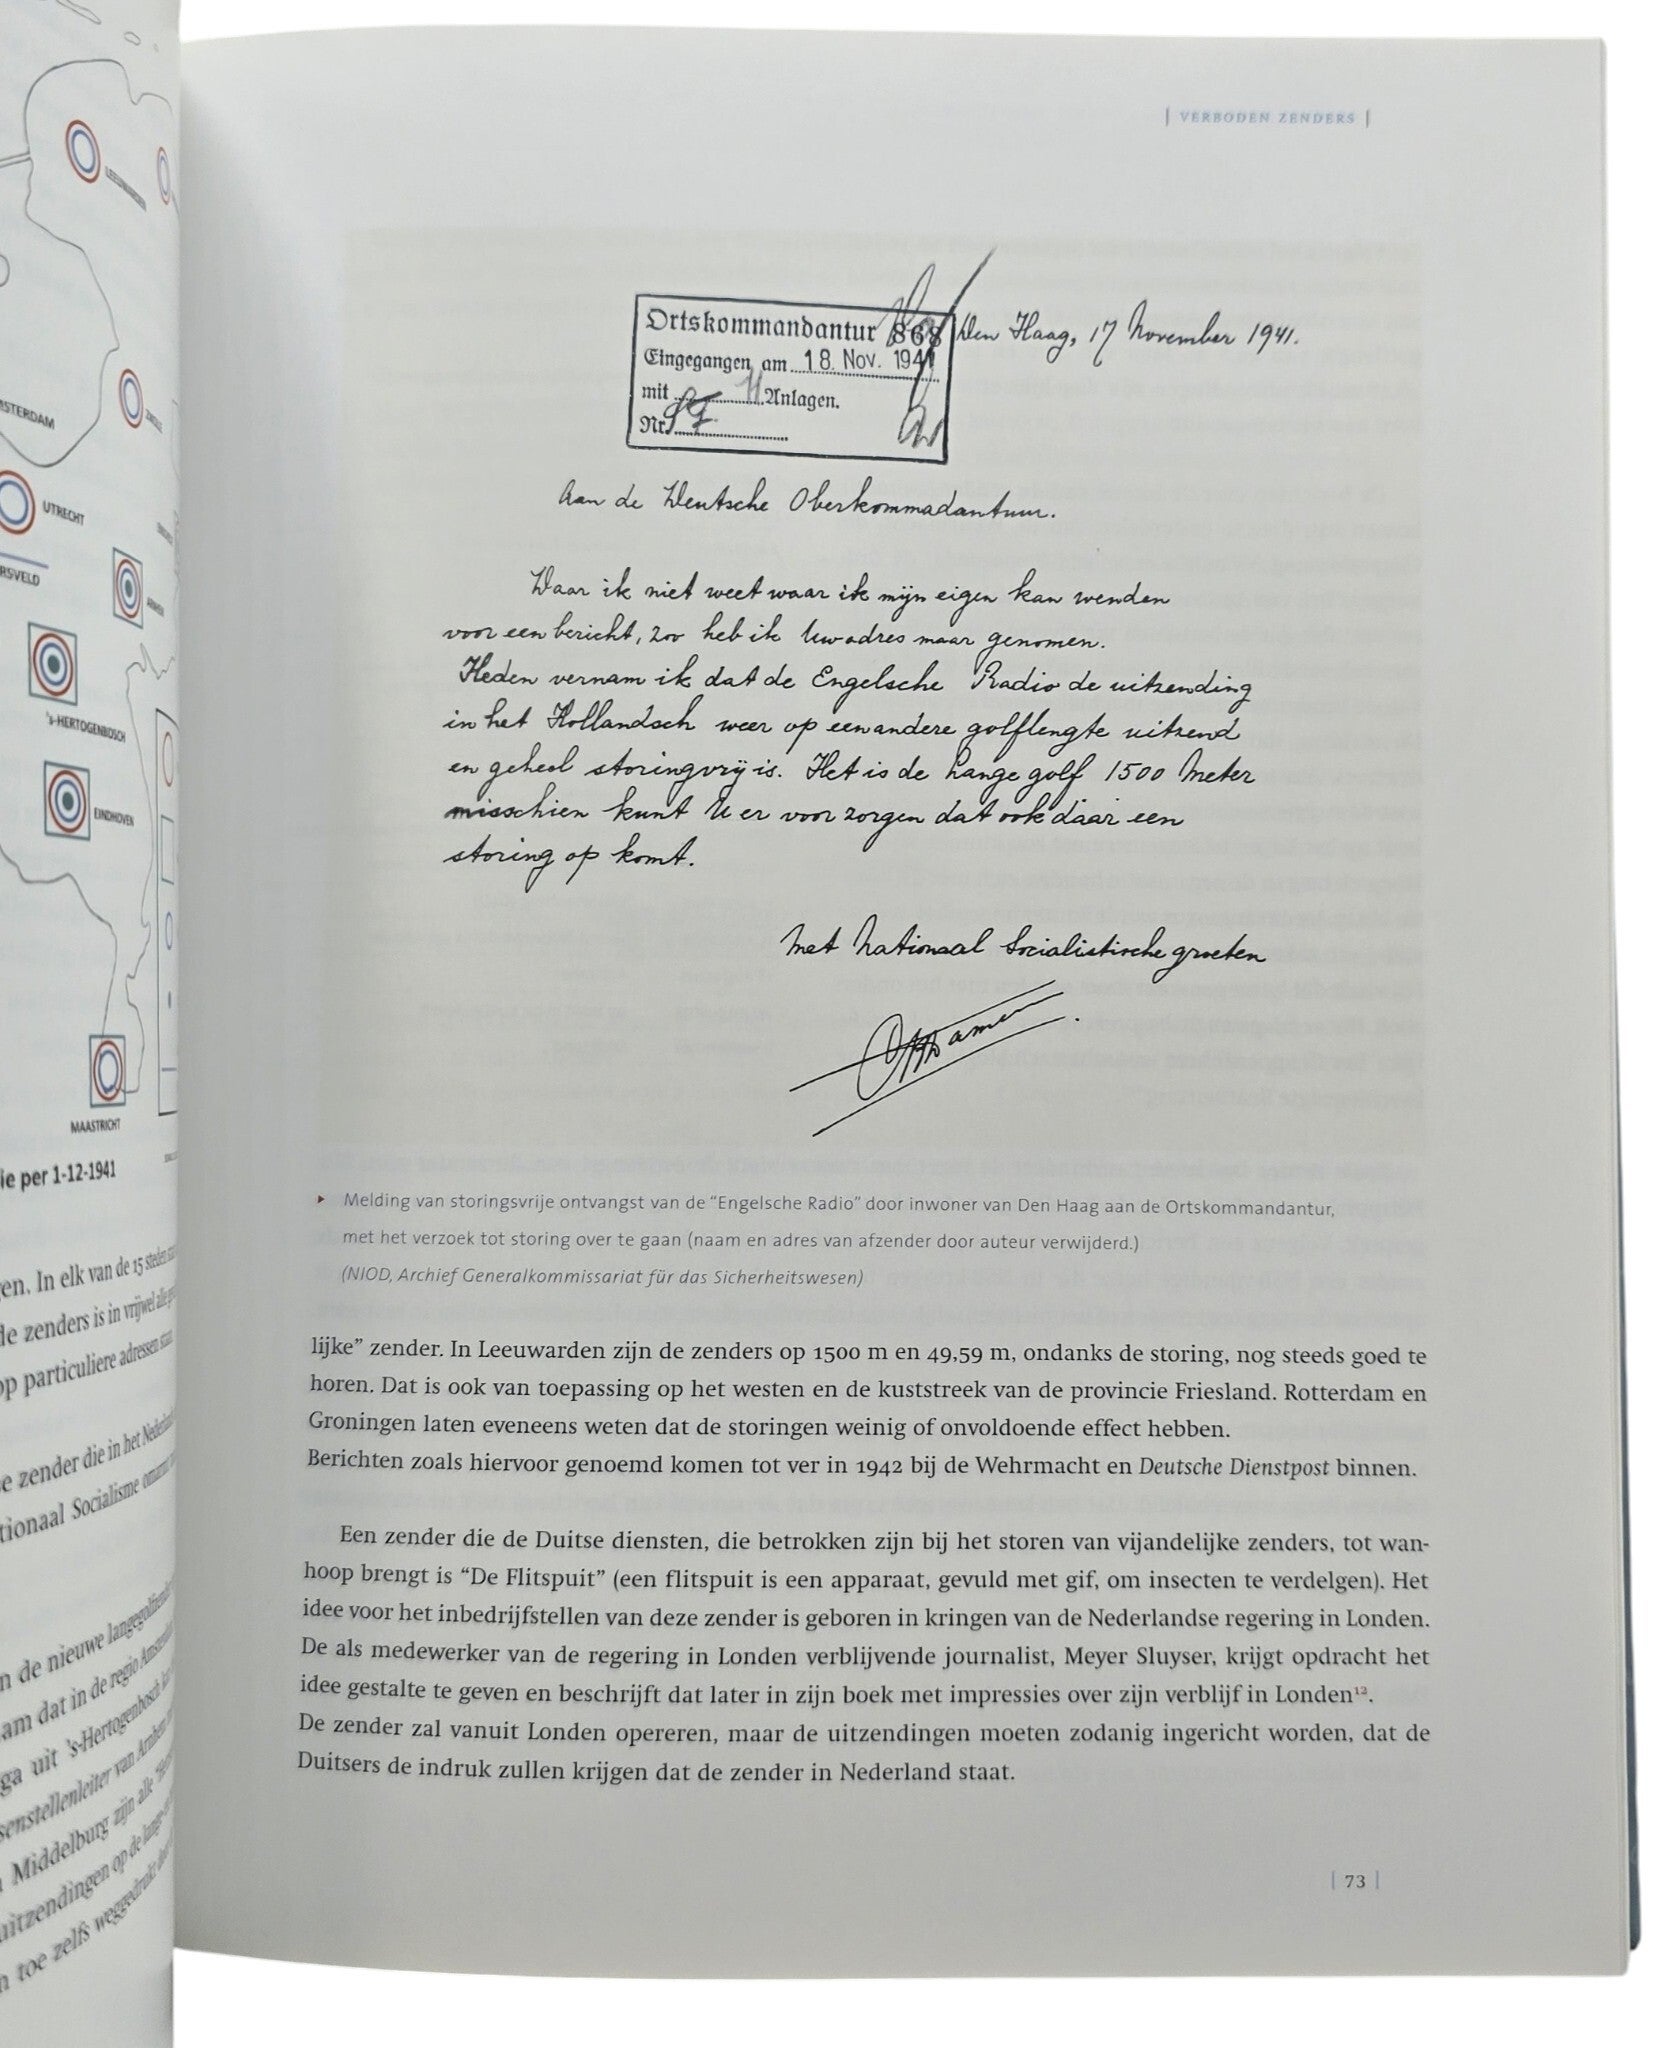 LEEUWARDEN
MSTERDAM
UTRECHT
RSVELD
's-HERTOGENBOSCH
EINDHOVEN
MAASTRICHT
ie per 1-12-1941
en. In elk van de 15 steden
de zenders is in vrijwel alle
op particuliere adressen
e zender die in het
tionaal Socialisme
n de nieuwe
am dat in de regio
ga uit 's-Hertogenbosch
senstellenleiter van Arnhem
Middelburg zijn alle
uitzendingen op de lange
n toe zelfs weggedrukt door
| VERBODEN ZENDERS |
Ortskommandantur 868
Eingegangen am 18. Nov. 1941
mit Anlagen.
Nr.
Den Haag, 17 November 1941.
Aan de Deutsche Oberkommadantuur.
Daar ik niet weet waar ik mijn eigen kan wenden
voor een bericht, zoo heb ik Uw adres maar genomen.
Heden vernam ik dat de Engelsche Radio de uitzending
in het Hollandsch weer op een andere golflengte uitzend
en geheel storingvrij is. Het is de Lange golf 1500 Meter
misschien kunt U er voor zorgen dat ook daar een
storing op komt.
Met Nationaal Socialistische groeten
▸ Melding van storingsvrije ontvangst van de “Engelsche Radio” door inwoner van Den Haag aan de Ortskommandantur,
met het verzoek tot storing over te gaan (naam en adres van afzender door auteur verwijderd.)
(NIOD, Archief Generalkommissariat für das Sicherheitswesen)
lijke” zender. In Leeuwarden zijn de zenders op 1500 m en 49,59 m, ondanks de storing, nog steeds goed te
horen. Dat is ook van toepassing op het westen en de kuststreek van de provincie Friesland. Rotterdam en
Groningen laten eveneens weten dat de storingen weinig of onvoldoende effect hebben.
Berichten zoals hiervoor genoemd komen tot ver in 1942 bij de Wehrmacht en Deutsche Dienstpost binnen.
Een zender die de Duitse diensten, die betrokken zijn bij het storen van vijandelijke zenders, tot wan-
hoop brengt is “De Flitspuit” (een flitspuit is een apparaat, gevuld met gif, om insecten te verdelgen). Het
idee voor het inbedrijfstellen van deze zender is geboren in kringen van de Nederlandse regering in Londen.
De als medewerker van de regering in Londen verblijvende journalist, Meyer Sluyser, krijgt opdracht het
idee gestalte te geven en beschrijft dat later in zijn boek met impressies over zijn verblijf in Londen¹².
De zender zal vanuit Londen opereren, maar de uitzendingen moeten zodanig ingericht worden, dat de
Duitsers de indruk zullen krijgen dat de zender in Nederland staat.
| 73 |